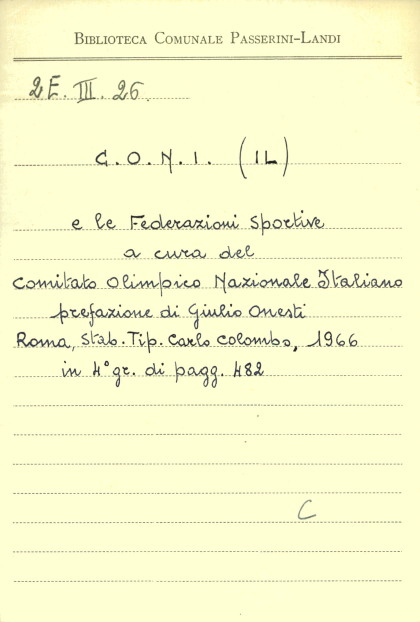 BIBLIOTECA COMUNALE PASSERINI-LANDI
2E. III. 26.
C. O. N. I. (IL)
e le Federazioni Sportive
a cura del
Comitato Olimpico Nazionale Italiano
prefazione di Giulio Onesti
Roma, Stab. Tip. Carlo Colombo, 1966
in 4° gr. di pagg. 482
C